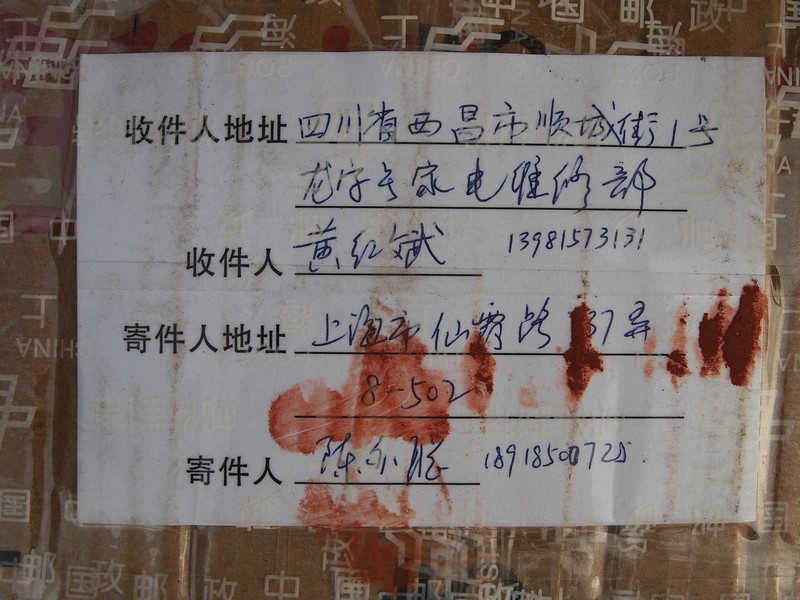 收件人地址 四川省西昌市顺城街1号
龙字号家电维修部
收件人 黄红斌 13981573131
寄件人地址 上海市仙霞路 37弄
8-502
寄件人 陈 18918500725